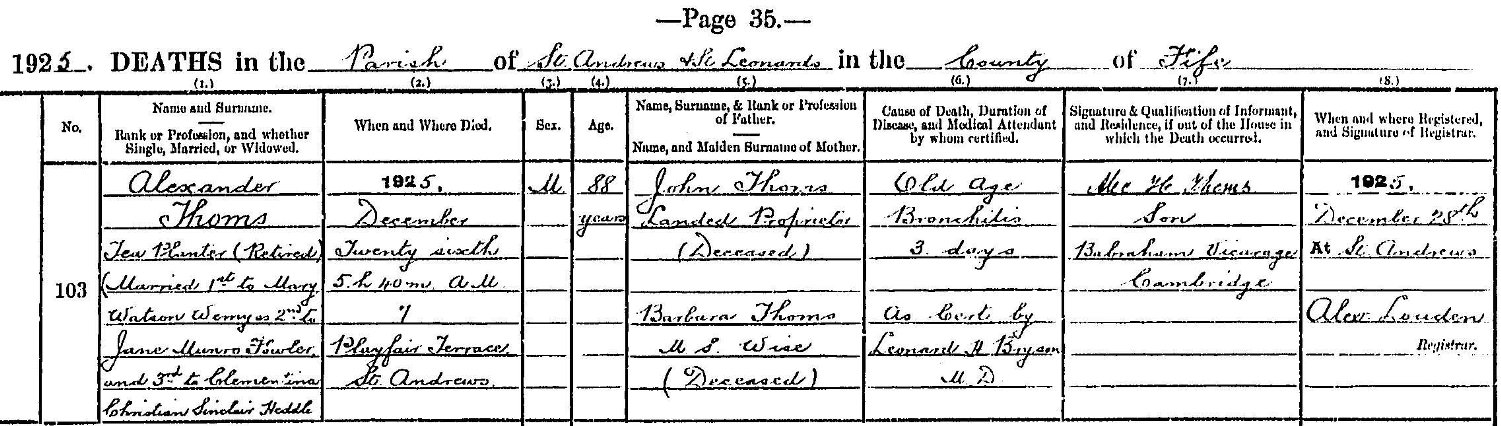 —Page 35.—
1925. DEATHS in the Parish of St. Andrews & St. Leonards in the County of Fife
(1.) (2.) (3.) (4.) (5.) (6.) (7.) (8.)
No.
Name and Surname.
Rank or Profession, and whether
Single, Married, or Widowed.
When and Where Died.
Sex.
Age.
Name, Surname, & Rank or Profession
of Father.
Name, and Maiden Surname of Mother.
Cause of Death, Duration of
Disease, and Medical Attendant
by whom certified.
Signature & Qualification of Informant,
and Residence, if out of the House in
which the Death occurred.
When and where Registered,
and Signature of Registrar.
103
Alexander
Thoms
Tea Planter (Retired)
(Married 1st to Mary
Watson Wemyss 2nd to
Jane Munro Fowler,
and 3rd to Clementina
Christian Sinclair Heddle
1925.
December
Twenty sixth
5 h 40 m. A M.
7
Playfair Terrace
St. Andrews.
M
88
years
John Thoms
Landed Proprietor
(Deceased)
Barbara Thoms
M. S. Wise
(Deceased)
Old Age
Bronchitis
3 days
As Cert by
Leonard H Bryson
M. D
Alec H Thoms
Son
Babraham Vicarage
Cambridge
1925.
December 28th
At St. Andrews
Alex Louden
Registrar.